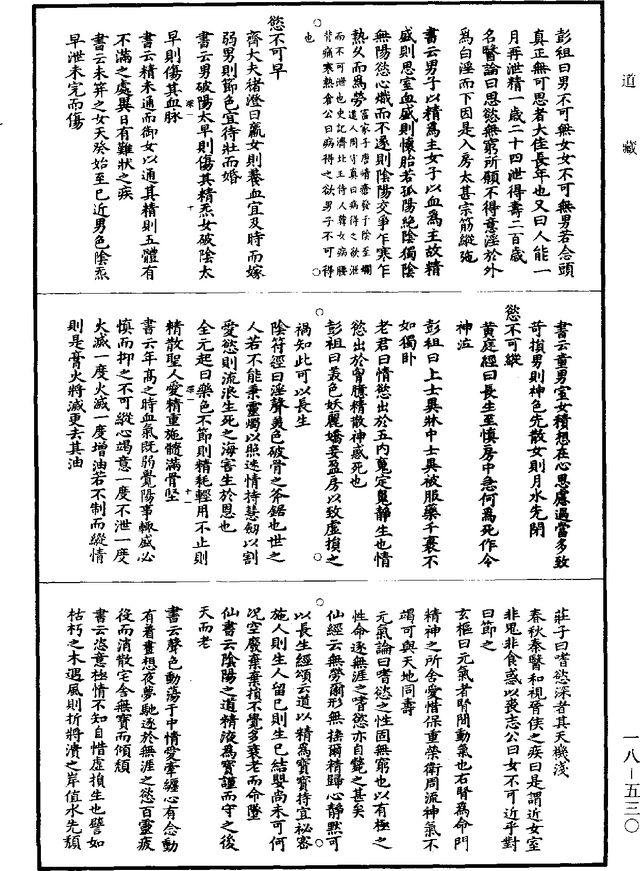 道藏
彭祖曰男不可無女女不可無男若念頭
真正無可思者大佳長年也又曰人能一
月再泄精一歲二十四泄得壽二百歲
名醫論曰思慾無窮所願不得意淫於外
為白淫而下因是入房太甚宗筋縱弛
書云男子以精為主女子以血為主故精
盛則思室血盛則懷胎若孤陽絕陰獨陰
無陽慾心熾而不遂則陰陽交爭乍寒乍
熱久而為勞富家子唐靖瘡發于陰至爛
道人周守真曰病得之欲泄
而不可泄也史記濟北王侍人韓女病腰
背痛寒熱倉公曰病得之欲男子不可得
也
慾不可早
齊大夫褚澄曰羸女則養血宜及時而嫁
弱男則節色宜待壯而婚
書云男破陽太早則傷其精炁女破陰太
早則傷其血脉
書云精未通而御女以通其精則五體有
不滿之處異日有難狀之疾
書云未笄之女天癸始至已近男色陰炁
早泄未完而傷
書云童男室女積想在心思慮過當多致
苛損男則神色先散女則月水先閉
慾不可縱
黃庭經曰長生至慎房中急何為死作令
神泣
彭祖曰上士異牀中士異被服藥千裹不
如獨卧
老君曰情慾出於五內魂定魄靜生也情
慾出於胷臆精散神惑死也
彭祖曰美色妖麗嬌妾盈房以致虛損之
禍知此可以長生
陰符經曰淫聲美色破骨之斧鋸也世之
人若不能秉靈燭以照迷情持慧劒以割
愛慾則流浪生死之海害生於恩也
全元起曰樂色不節則精耗輕用不止則
精散聖人愛精重施髓滿骨堅
書云年高之時血氣既弱覺陽事輒盛必
慎而抑之不可縱心竭意一度不泄一度
火滅一度火滅一度增油若不制而縱情
則是膏火將滅更去其油
莊子曰嗜慾深者其天機淺
春秋秦醫和視晉侯之疾曰是謂近女室
非鬼非食惑以喪志公曰女不可近乎對
曰節之
玄樞曰元氣者腎間動氣也右腎為命門
精神之所舍愛惜保重榮衛周流神氣不
竭可與天地同壽
元氣論曰嗜慾之性固無窮也以有極之
性命逐無涯之嗜慾亦自斃之甚矣
仙經云無勞爾形無搖爾精歸心靜默可
以長生經頌云道以精為寶寶持宜祕密
施人則生人留己則生己結嬰尚未可何
況空廢棄棄損不覺多衰老而命墜
仙書云陰陽之道精液為寶謹而守之後
天而老
書云聲色動蕩于中情愛牽纏心有念動
有着晝想夜夢馳逐於無涯之慾百靈疲
役而消散宅舍無寶而傾頹
書云恣意極情不知自惜虛損生也譬如
枯朽之木遇風則折將潰之岸值水先頹
一八—五三〇